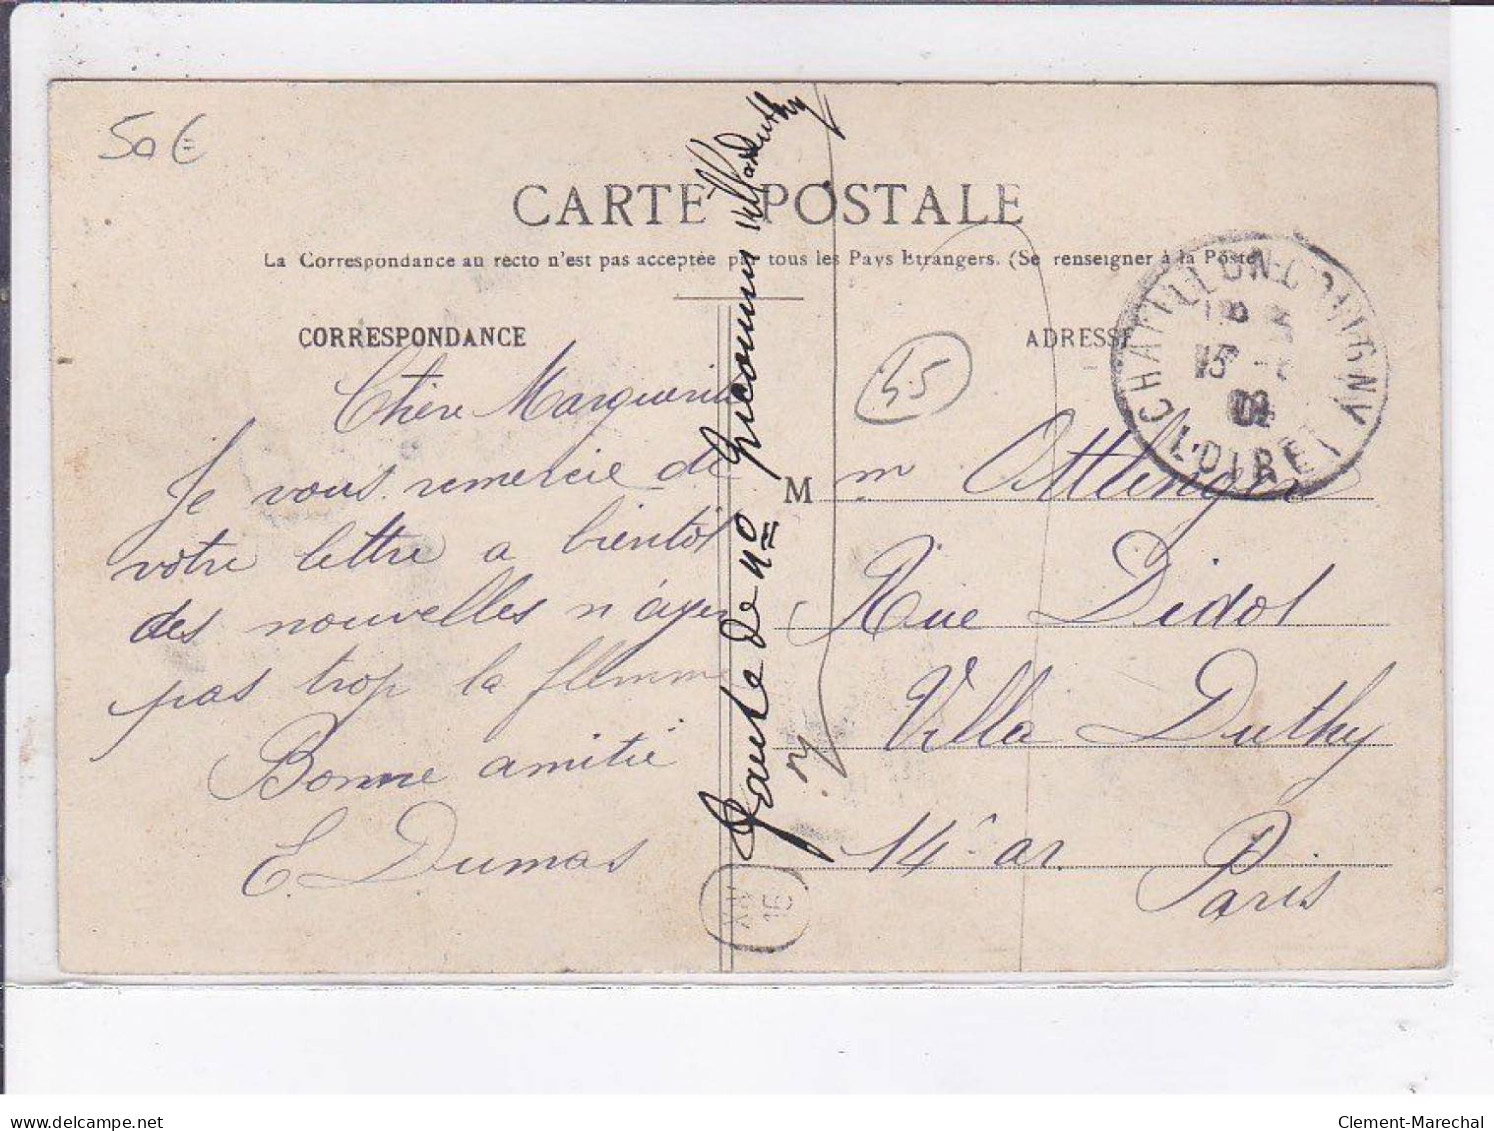 50€
CARTE POSTALE
La Correspondance au recto n'est pas acceptée par tous les Pays Etrangers. (Se renseigner à la Poste
CORRESPONDANCE
ADRESSE
45
CHATILLON-COLIGNY
15
LOIRET
Chère Marguerite
Je vous remercie de
votre lettre a bientôt
des nouvelles n'ayez
pas trop la flemme
Bonne amitié
E. Dumas
M m Ottlinger
Rue Didot
Villa Duthy
14e ar
Paris
inconnu villa Duthy
1E
Clement-Marechal